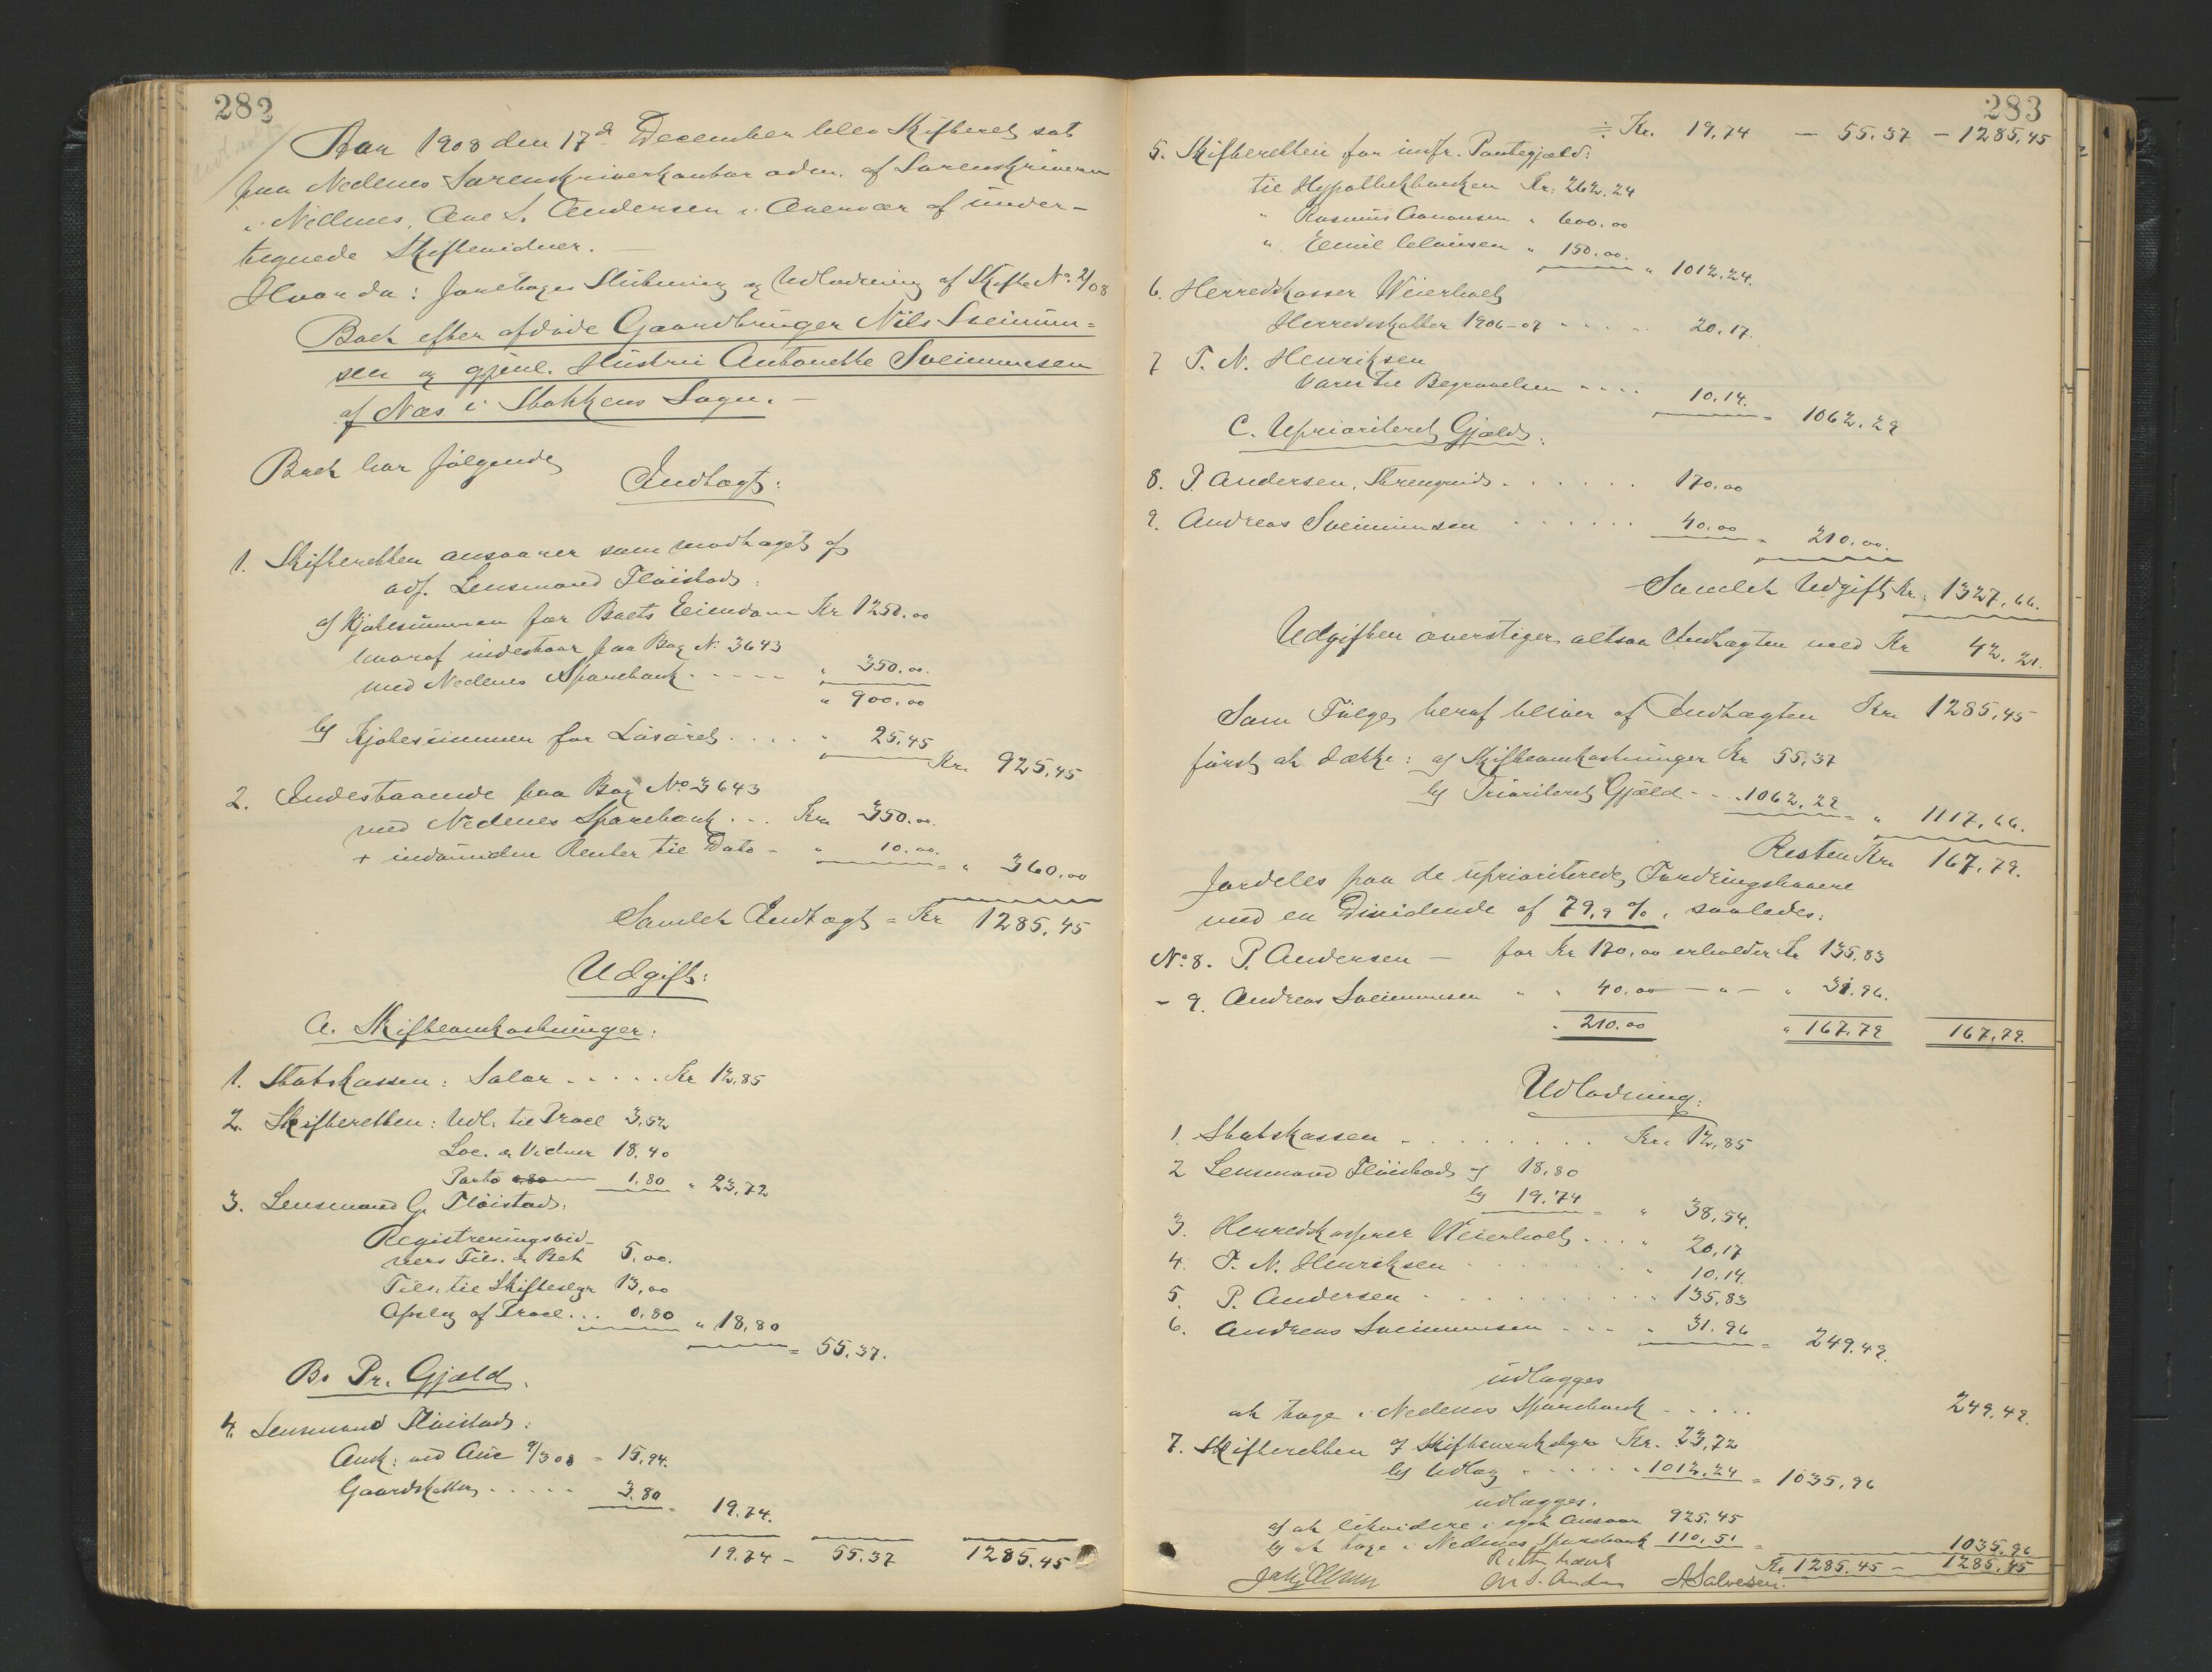 282
Aar 1908 den 17de December blev Skifteret sat
paa Nedenes Sorenskriverkontor adm. af Sorenskriveren
i Nedenes, Ove S. Andersen i Overvær af under-
tegnede Skiftevidner. —
Hvorda: foretoges Slutning og Udlodning af Skifte No. 2/08
Boet efter afdøde Gaardbruger Nils Sveinun-
sen og gjenl. Hustru Antonette Sveinunsen
af Næs i Stokkens Sogn. —
Boet har følgende
Indtægt:
1. Skifteretten ansvarer som modtaget af
adf. Lensmand Fløistad:
a) Kjøbesummen for Boets Eiendom Kr 1250.00
hvoraf indestaar paa Bog No 3643
med Nedenes Sparebank . - - - - " 350.00.
" 900.00
b) Kjøbesummen for Løsøret . . . . " 25.45
Kr. 925,45
2. Indestaaende paa Bog No 3643
med Nedenes Sparebank . . . Kr. 350.00.
+ indvundne Renter til Dato - " 10.00. = " 360.00
Samlet Indtægt = Kr 1285.45
Udgift:
A. Skifteomkostninger:
1. Statskassen: Salær . . . . . Kr 12,85
2. Skifteretten: Udl. til Procl 3,52
Loc. & Vidner 18.40
Porto 0.80 1.80 " 23,72
3. Lensmand G. Fløistad:
Registreringsvid-
ners Tils. & Bek 5.00.
Tils. til Skifteslgr 13,00
Opslag af Procl . . . 0.80 " 18,80
= 55.37.
B. Pr. Gjæld.
4. Lensmand Fløistad:
Omk. ved Auc 9/3 08 = 15.94.
Gaardskatter . . . . . 3.80 = 19.74.
19.74 — 55.37 1285.45
283
÷ Kr. 19.74 — 55.37 — 1285,45
5. Skifteretten for indfr. Pantegjæld:
til Hypothekbanken Kr. 262.24
" Rasmus Aanonsen " 600.00
" Emil Clausen " 150.00. " 1012.24.
6. Herredskasser Weierholt
Herredsskatter 1906-07 - - - - - 20.17.
7 T. N. Henriksen
Varer til Begravelsen - - - - 10.14. = 1062.29
C. Uprioriteret Gjæld:
8. P. Andersen, Strengereid . . . . . . 170.00
9. Andreas Sveinunsen . . . . . . 40.00 = 210.00.
Samlet Udgift Kr. 1327.66.
Udgiften overstiger altsaa Indtægten med Kr 42.21.
Som Følge heraf bliver af Indtægten Kr. 1285,45
først at dække: a) Skifteomkostninger Kr 55.37
b) Prioriteret Gjæld - . . 1062.29 = " 1117.66.
Resten Kr. 167.79.
fordeles paa de uprioriterede Fordringshavere
med en Dividende af 79,9 %, saaledes:
No 8. P. Andersen — for Kr 170.00 erholder Kr 135.83
- 9. Andreas Sveinunsen " " 40.00 — " — " 31.96.
. 210.00 " 167.79 167.79.
Udlodning:
1. Statskassen . . . . . . . . Kr. 12,85
2 Lensmand Fløistad a) 18.80
b) 19.74 = " 38.54.
3. Herredskasserer Weierholt . . . " 20,17
4. T. N. Henriksen . . . . . . " 10.14.
5. P. Andersen . . . . . . . . . " 135,83
6. Andreas Sveinunsen . . - - " 31.96 = 249.49.
udlægges
at tage i Nedenes Sparebank - - . . . 249.49.
7. Skifteretten a) Skifteomkstgr Kr. 23,72
b) Udlæg . . . . . . 1012.24 = 1035.96
udlægges:
a) at likvidere i eget Ansvar 925.45
b) at tage i Nedenes Sparebank 110.51 = 1035.96
Kr 1285.45 — 1285.45
Retten hævet
Ove S. Andersen A Salvesen